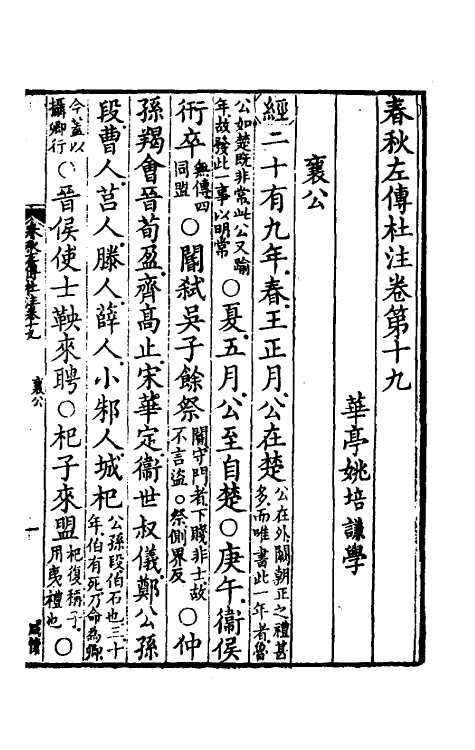 春秋左傳杜注卷第十九
華亭姚培謙學
襄公
經二十有九年春王正月公在楚公在外闕朝正之禮甚多而唯書此一年者魯
公如楚既非常此公又踰年故發此一事以明常○夏五月公至自楚○庚午衞侯
衎卒無傳四同盟○閽弒吳子餘祭閽守門者下賤非士故不言盜○祭側界反○仲
孫羯會晉荀盈齊高止宋華定衞世叔儀鄭公孫
段曹人莒人滕人薛人小邾人城杞公孫段伯石也三十年伯有死乃命為卿
今蓋以攝卿行○晉侯使士鞅來聘○杞子來盟杞復稱子用夷禮也○
春秋左傳杜注卷十九
襄公
一